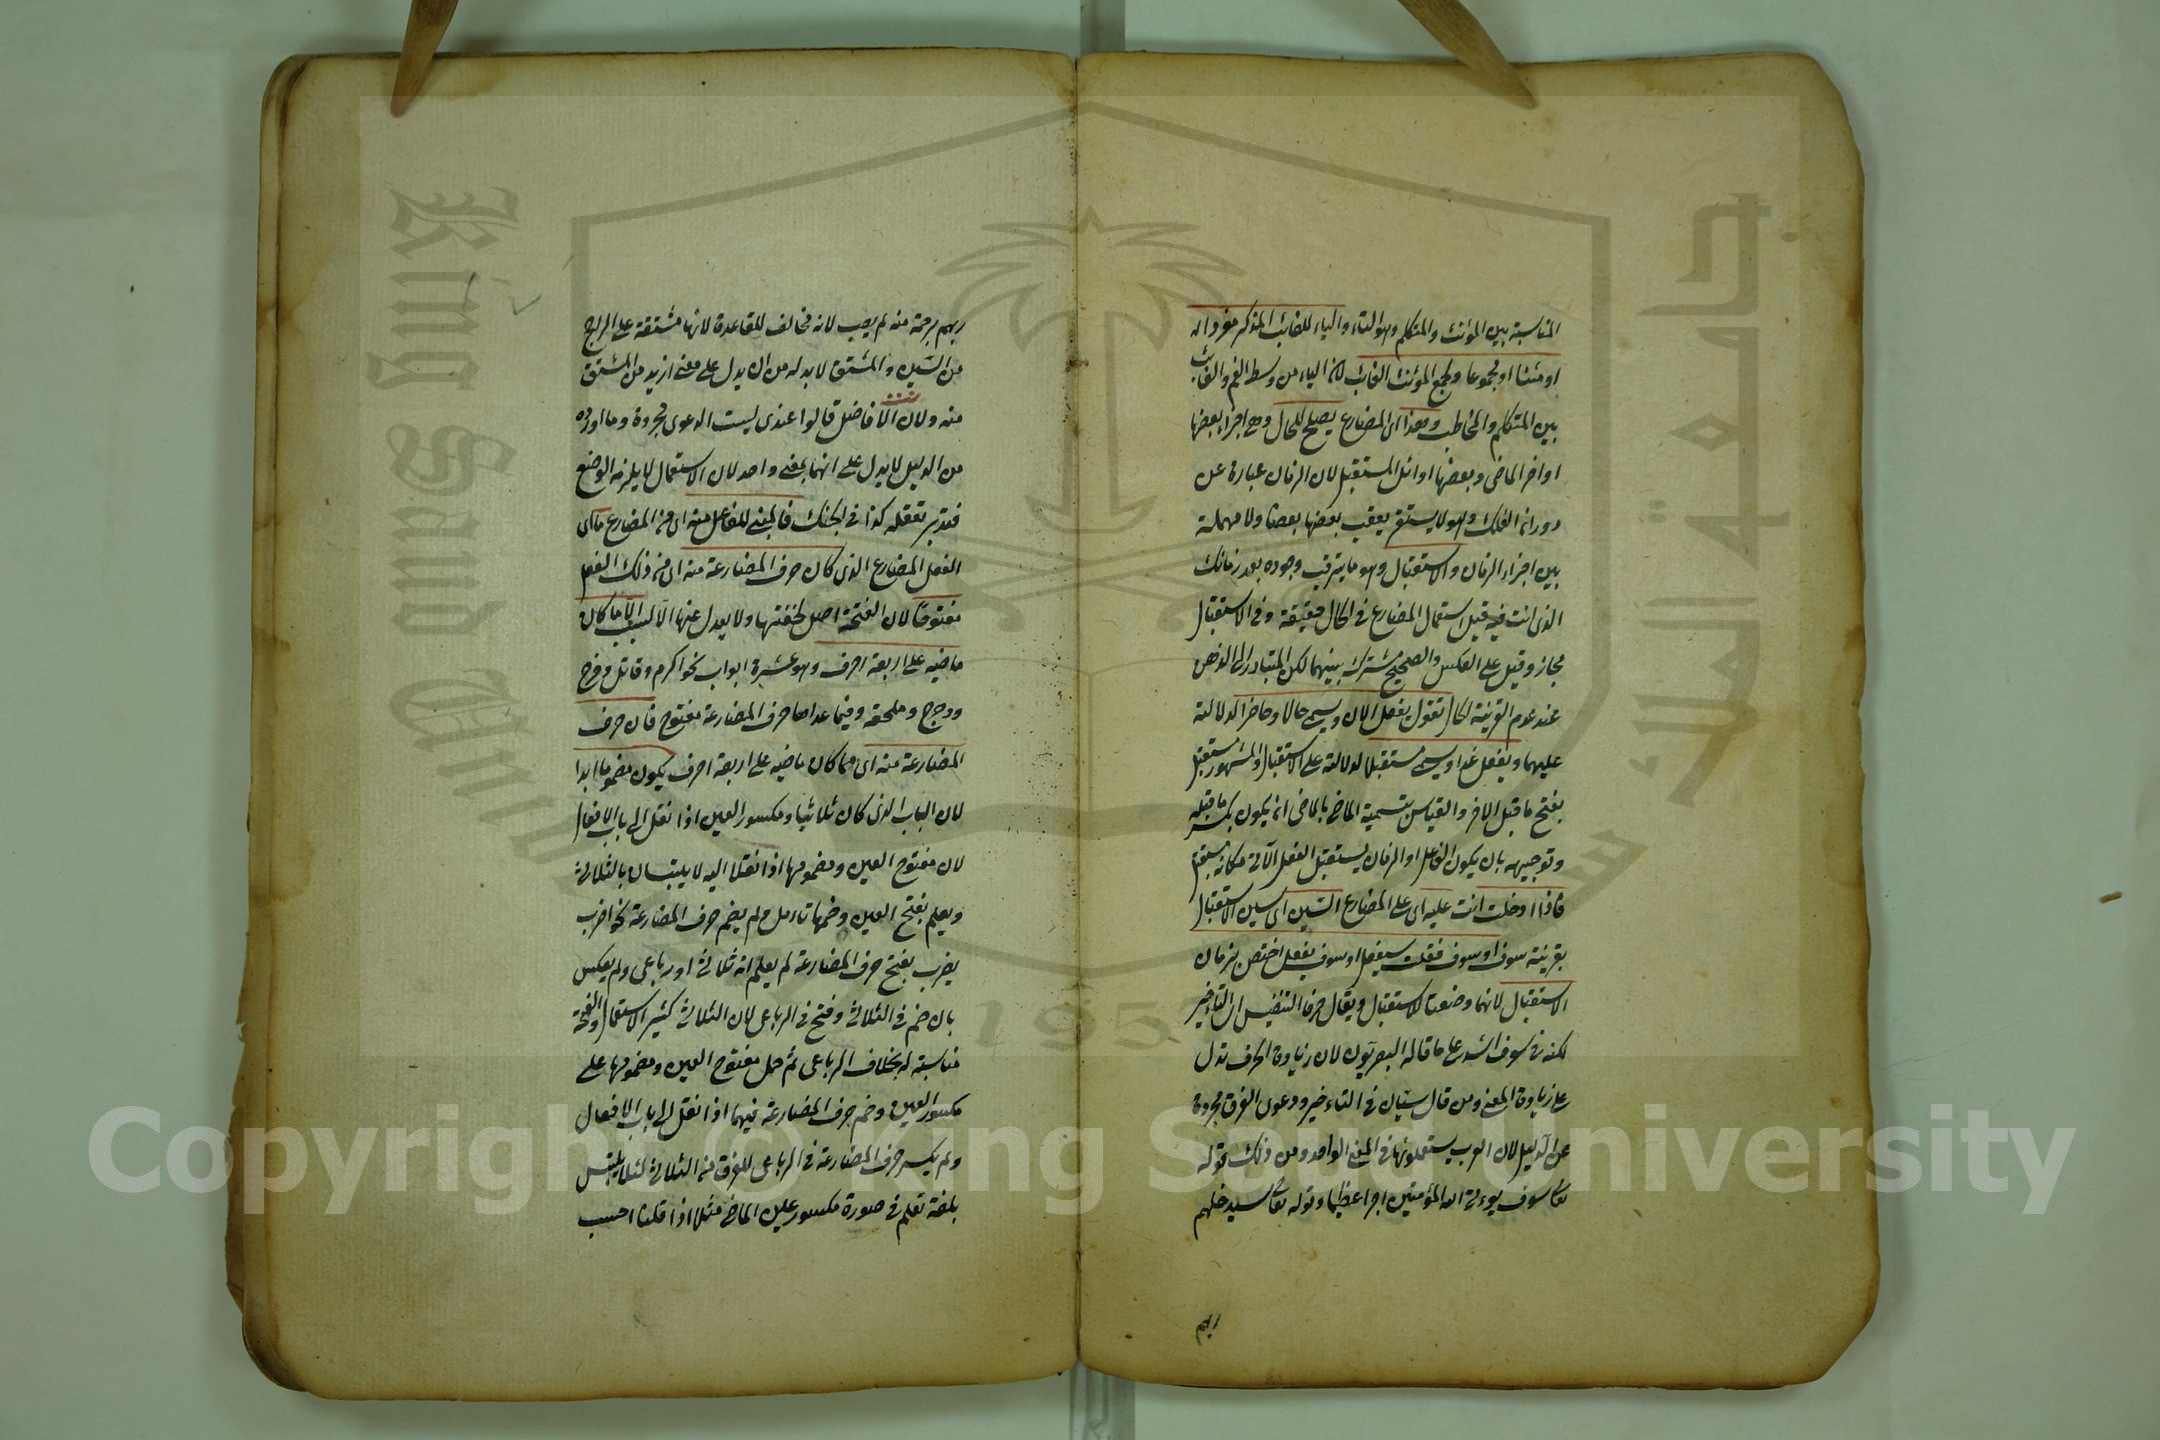 المناسبة بين المؤنث والمتكلم وهو التاء والياء للغائب المذكر مفردا له
او مثنا او مجموعا ولجمع المؤنث الغائب لان الياء من وسط الفم والغائب
بين المتكلم والمخاطب وهذا اى المضارع يصلح للحال وهى اجزاء بعضها
اواخر الماضى وبعضها اوائل المستقبل لان الزمان عبارة عن
دوران الفلك وهو لا يستقر يعقب بعضها بعضا ولا مهملة
بين اجزاء الزمان والاستقبال وهو ما يترقب وجوده بعد زمانك
الذى انت فيه قيل استعمال المضارع فى الحال حقيقة وفى الاستقبال
مجاز وقيل على العكس والصحيح مشترك بينهما لكن المتبادر الى الذهن
عند عدم القرينة الحال تقول يفعل الان ويسمى حالا وحاضرا لدلالته
عليهما ويفعل غدا ويسمى مستقبلا لدلالته على الاستقبال والمشهور مستقبل
بفتح ما قبل الاخر والقياس بتسمية الماضى بالماضى ان يكون بكسر ما قبله
وتوجيهه بان يكون الفاعل او الزمان يستقبل الفعل الآتى مكانه مستقبل
فاذا ادخلت انت عليه اى على المضارع السين اى سين الاستقبال
بقرينة سوف او سوف فقلت سيفعل او سوف يفعل اختص بزمان
الاستقبال لانهما وضعتا للاستقبال ويقال حرفا التنفيس اى التأخير
لكنه فى سوف اشد على ما قاله البصريون لان زيادة الحرف تدل
على زيادة المعنى ومن قال سيان فى التاءخير ودعوى الفرق مجردة
عن الدليل لان العرب يستعملونها فى المعنى الواحد ومن ذلك قوله
تعالى سوف يوءتى الله المؤمنين اجرا عظيما وقوله تعالى سيدخلهم
ربهم
ربهم برحمة منه لم يصب لانه مخالف للقاعدة لانها مشتقة على الراجح
من السين والمشتق لابد له من ان يدل على معنى ازيد من المشتق
منه ولان الافاضل قالوا عندى ليست الدعوى مجردة وما اورده
من الدليل لا يدل على انهما بمعنى واحد لان الاستعمال لا يلزمه الوضع
فتدبر تعقله كذا فى فالمبنى للفاعل منه اى من المضارع ما اى
الفعل المضارع الذى كان حرف المضارعة منه اى من ذلك الفعل
مفتوحا لان الفتحة اصل لخفتها ولا يعدل عنها الا لسبب الا ما كان
ماضيه على اربعة احرف وهو عشرة ابواب نحو اكرم وقاتل وفرح
ودحرج وملحقه وفيما عداها حرف المضارعة مفتوح فان حرف
المضارعة منه اى مما كان ماضيه على اربعة احرف يكون مضموما ابدا
لان الباب الذى كان ثلاثيا ومكسور العين اذا نقل الى باب الافعال
لان مفتوح العين ومضمومها اذا نقلا اليه لا يلتبسان بالثلاثى
ويعلم بفتح العين وضمها تاءمل ولم يضم حرف المضارعة نحو اضرب
يضرب بفتح حرف المضارعة لم يعلم انه ثلاثى او رباعى ولم يعكس
بان ضم فى الثلاثى وفتح فى الرباعى لان الثلاثى كثير الاستعمال والفتحة
مناسبة له بخلاف الرباعى ثم حمل مفتوح العين ومضمومها على
مكسور العين وضم حرف المضارعة فيهما اذا نقل الى باب الافعال
ولم يكسر حرف المضارعة فى الرباعى للفرق من الثلاثى لئلا يلتبس
بلغة تعلم فى صورة مكسور عين الماضى مثلا اذا قلنا احسب
Copyright © King Saud University
King Saud University
جامعة الملك
1957